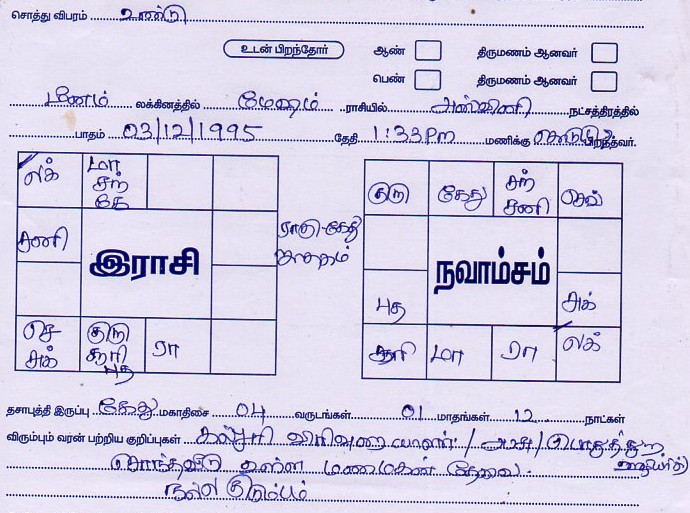 சொத்து விபரம் உண்டு
உடன் பிறந்தோர் ஆண் திருமணம் ஆனவர்
பெண் திருமணம் ஆனவர்
மீனம் லக்கினத்தில் மேஷம் ராசியில் அஸ்வினி நட்சத்திரத்தில்
பாதம் 03/12/1995 தேதி 1:33 Pm மணிக்கு பிறந்தவர்.
லக்
மா
சந்
கே
சனி
இராசி
செ
சுக்
குரு
சூரி
புத
ரா
ராகு-கேது
குரு
கேது
சந்
சனி
செவ்
புத
நவாம்சம்
சுக்
சூரி
மா
ரா
லக்
தசாபுத்தி இருப்பு கேது மகாதிசை 04 வருடங்கள் 01 மாதங்கள் 12 நாட்கள்
விரும்பும் வரன் பற்றிய குறிப்புகள் கல்லூரி விரிவுரையாளர் / அரசு / பொதுத்துறை
சொந்தவீடு உள்ள மணமகன் தேவை.
நல்ல குடும்பம்